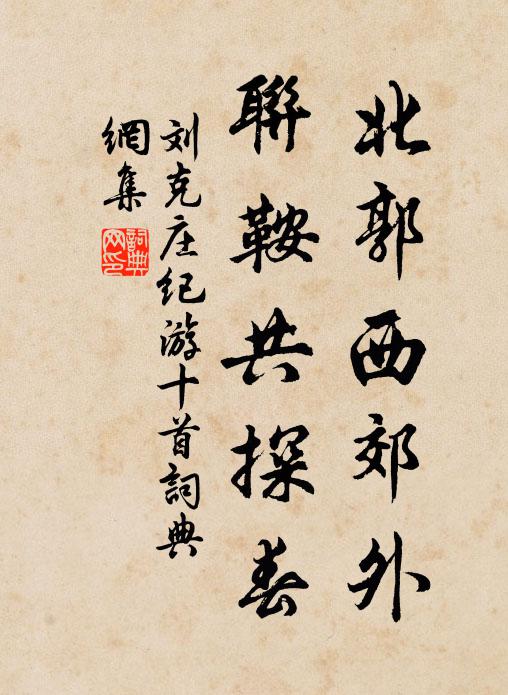 北郭西郊外
聯鞍共探春
刘克庄纪游十首詞典
網集
詞典
网印